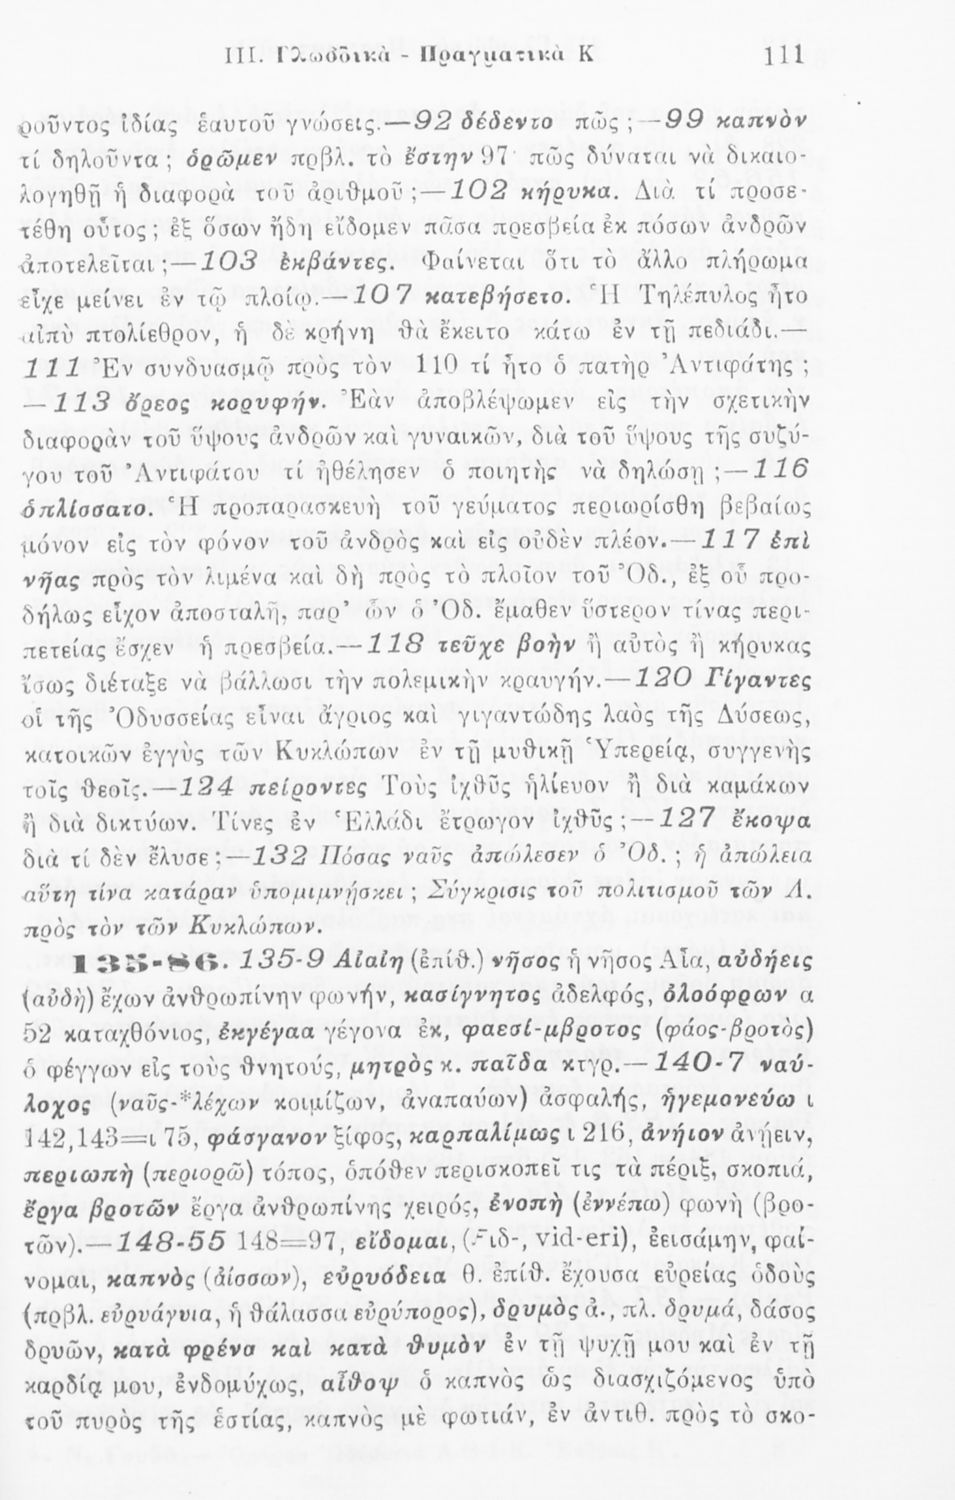 III. Γλωσσικὰ - Πραγματικὰ Κ 111
ροῦντος ἰδίας ἑαυτοῦ γνώσεις.—92 δέδεντο πῶς ;—99 καπνὸν
τί δηλοῦντα ; ὁρῶμεν πρβλ. τὸ ἔστην 97 πῶς δύναται νὰ δικαιο-
λογηθῇ ἡ διαφορὰ τοῦ ἀριθμοῦ ;—102 κήρυκα. Διὰ τί προσε-
τέθη οὗτος ; ἐξ ὅσων ἤδη εἴδομεν πᾶσα πρεσβεία ἐκ πόσων ἀνδρῶν
ἀποτελεῖται ;—103 ἐκβάντες. Φαίνεται ὅτι τὸ ἄλλο πλήρωμα
εἶχε μείνει ἐν τῷ πλοίῳ.—107 κατεβήσετο. Ἡ Τηλέπυλος ἦτο
αἰπὺ πτολίεθρον, ἡ δὲ κρήνη θὰ ἔκειτο κάτω ἐν τῇ πεδιάδι.—
111 Ἐν συνδυασμῷ πρὸς τὸν 110 τί ἦτο ὁ πατὴρ Ἀντιφάτης ;
—113 ὄρεος κορυφήν. Ἐὰν ἀποβλέψωμεν εἰς τὴν σχετικὴν
διαφορὰν τοῦ ὕψους ἀνδρῶν καὶ γυναικῶν, διὰ τοῦ ὕψους τῆς συζύ-
γου τοῦ Ἀντιφάτου τί ἠθέλησεν ὁ ποιητὴς νὰ δηλώσῃ ;—116
ὁπλίσσατο. Ἡ προπαρασκευὴ τοῦ γεύματος περιωρίσθη βεβαίως
μόνον εἰς τὸν φόνον τοῦ ἀνδρὸς καὶ εἰς οὐδὲν πλέον.—117 ἐπὶ
νῆας πρὸς τὸν λιμένα καὶ δὴ πρὸς τὸ πλοῖον τοῦ Ὀδ., ἐξ οὗ προ-
δήλως εἶχον ἀποσταλῆ, παρ’ ὧν ὁ Ὀδ. ἔμαθεν ὕστερον τίνας περι-
πετείας ἔσχεν ἡ πρεσβεία.—118 τεῦχε βοὴν ἢ αὐτὸς ἢ κήρυκας
ἴσως διέταξε νὰ βάλλωσι τὴν πολεμικὴν κραυγήν.—120 Γίγαντες
οἱ τῆς Ὀδυσσείας εἶναι ἄγριος καὶ γιγαντώδης λαὸς τῆς Δύσεως,
κατοικῶν ἐγγὺς τῶν Κυκλώπων ἐν τῇ μυθικῇ Ὑπερείᾳ, συγγενὴς
τοῖς θεοῖς.—124 πείροντες Τοὺς ἰχθῦς ἡλίευον ἢ διὰ καμάκων
ἢ διὰ δικτύων. Τίνες ἐν Ἑλλάδι ἔτρωγον ἰχθῦς ;—127 ἔκοψα
διὰ τί δὲν ἔλυσε ;—132 Πόσας ναῦς ἀπώλεσεν ὁ Ὀδ. ; ἡ ἀπώλεια
αὕτη τίνα κατάραν ὑπομιμνήσκει ; Σύγκρισις τοῦ πολιτισμοῦ τῶν Λ.
πρὸς τὸν τῶν Κυκλώπων.
135-86. 135-9 Αἰαίη (ἐπίθ.) νῆσος ἡ νῆσος Αἶα, αὐδήεις
(αὐδὴ) ἔχων ἀνθρωπίνην φωνήν, κασίγνητος ἀδελφός, ὀλοόφρων α
52 καταχθόνιος, ἐκγέγαα γέγονα ἐκ, φαεσί-μβροτος (φάος-βροτὸς)
ὁ φέγγων εἰς τοὺς θνητούς, μητρὸς κ. παῖδα κτγρ.—140-7 ναύ-
λοχος (ναῦς-*λέχων κοιμίζων, ἀναπαύων) ἀσφαλής, ἡγεμονεύω ι
142,143=ι 75, φάσγανον ξίφος, καρπαλίμως ι 216, ἀνήιον ἀνῄειν,
περιωπὴ (περιορῶ) τόπος, ὁπόθεν περισκοπεῖ τις τὰ πέριξ, σκοπιά,
ἔργα βροτῶν ἔργα ἀνθρωπίνης χειρός, ἐνοπὴ (ἐννέπω) φωνὴ (βρο-
τῶν).—148-55 148=97, εἴδομαι, (Ϝιδ-, vid-eri), ἐεισάμην, φαί-
νομαι, καπνὸς (ἀίσσων), εὐρυόδεια θ. ἐπίθ. ἔχουσα εὐρείας ὁδοὺς
(πρβλ. εὐρυάγυια, ἡ θάλασσα εὐρύπορος), δρυμὸς ἀ., πλ. δρυμά, δάσος
δρυῶν, κατὰ φρένα καὶ κατὰ θυμὸν ἐν τῇ ψυχῇ μου καὶ ἐν τῇ
καρδίᾳ μου, ἐνδομύχως, αἶθοψ ὁ καπνὸς ὡς διασχιζόμενος ὑπὸ
τοῦ πυρὸς τῆς ἑστίας, καπνὸς μὲ φωτιάν, ἐν ἀντιθ. πρὸς τὸ σκο-